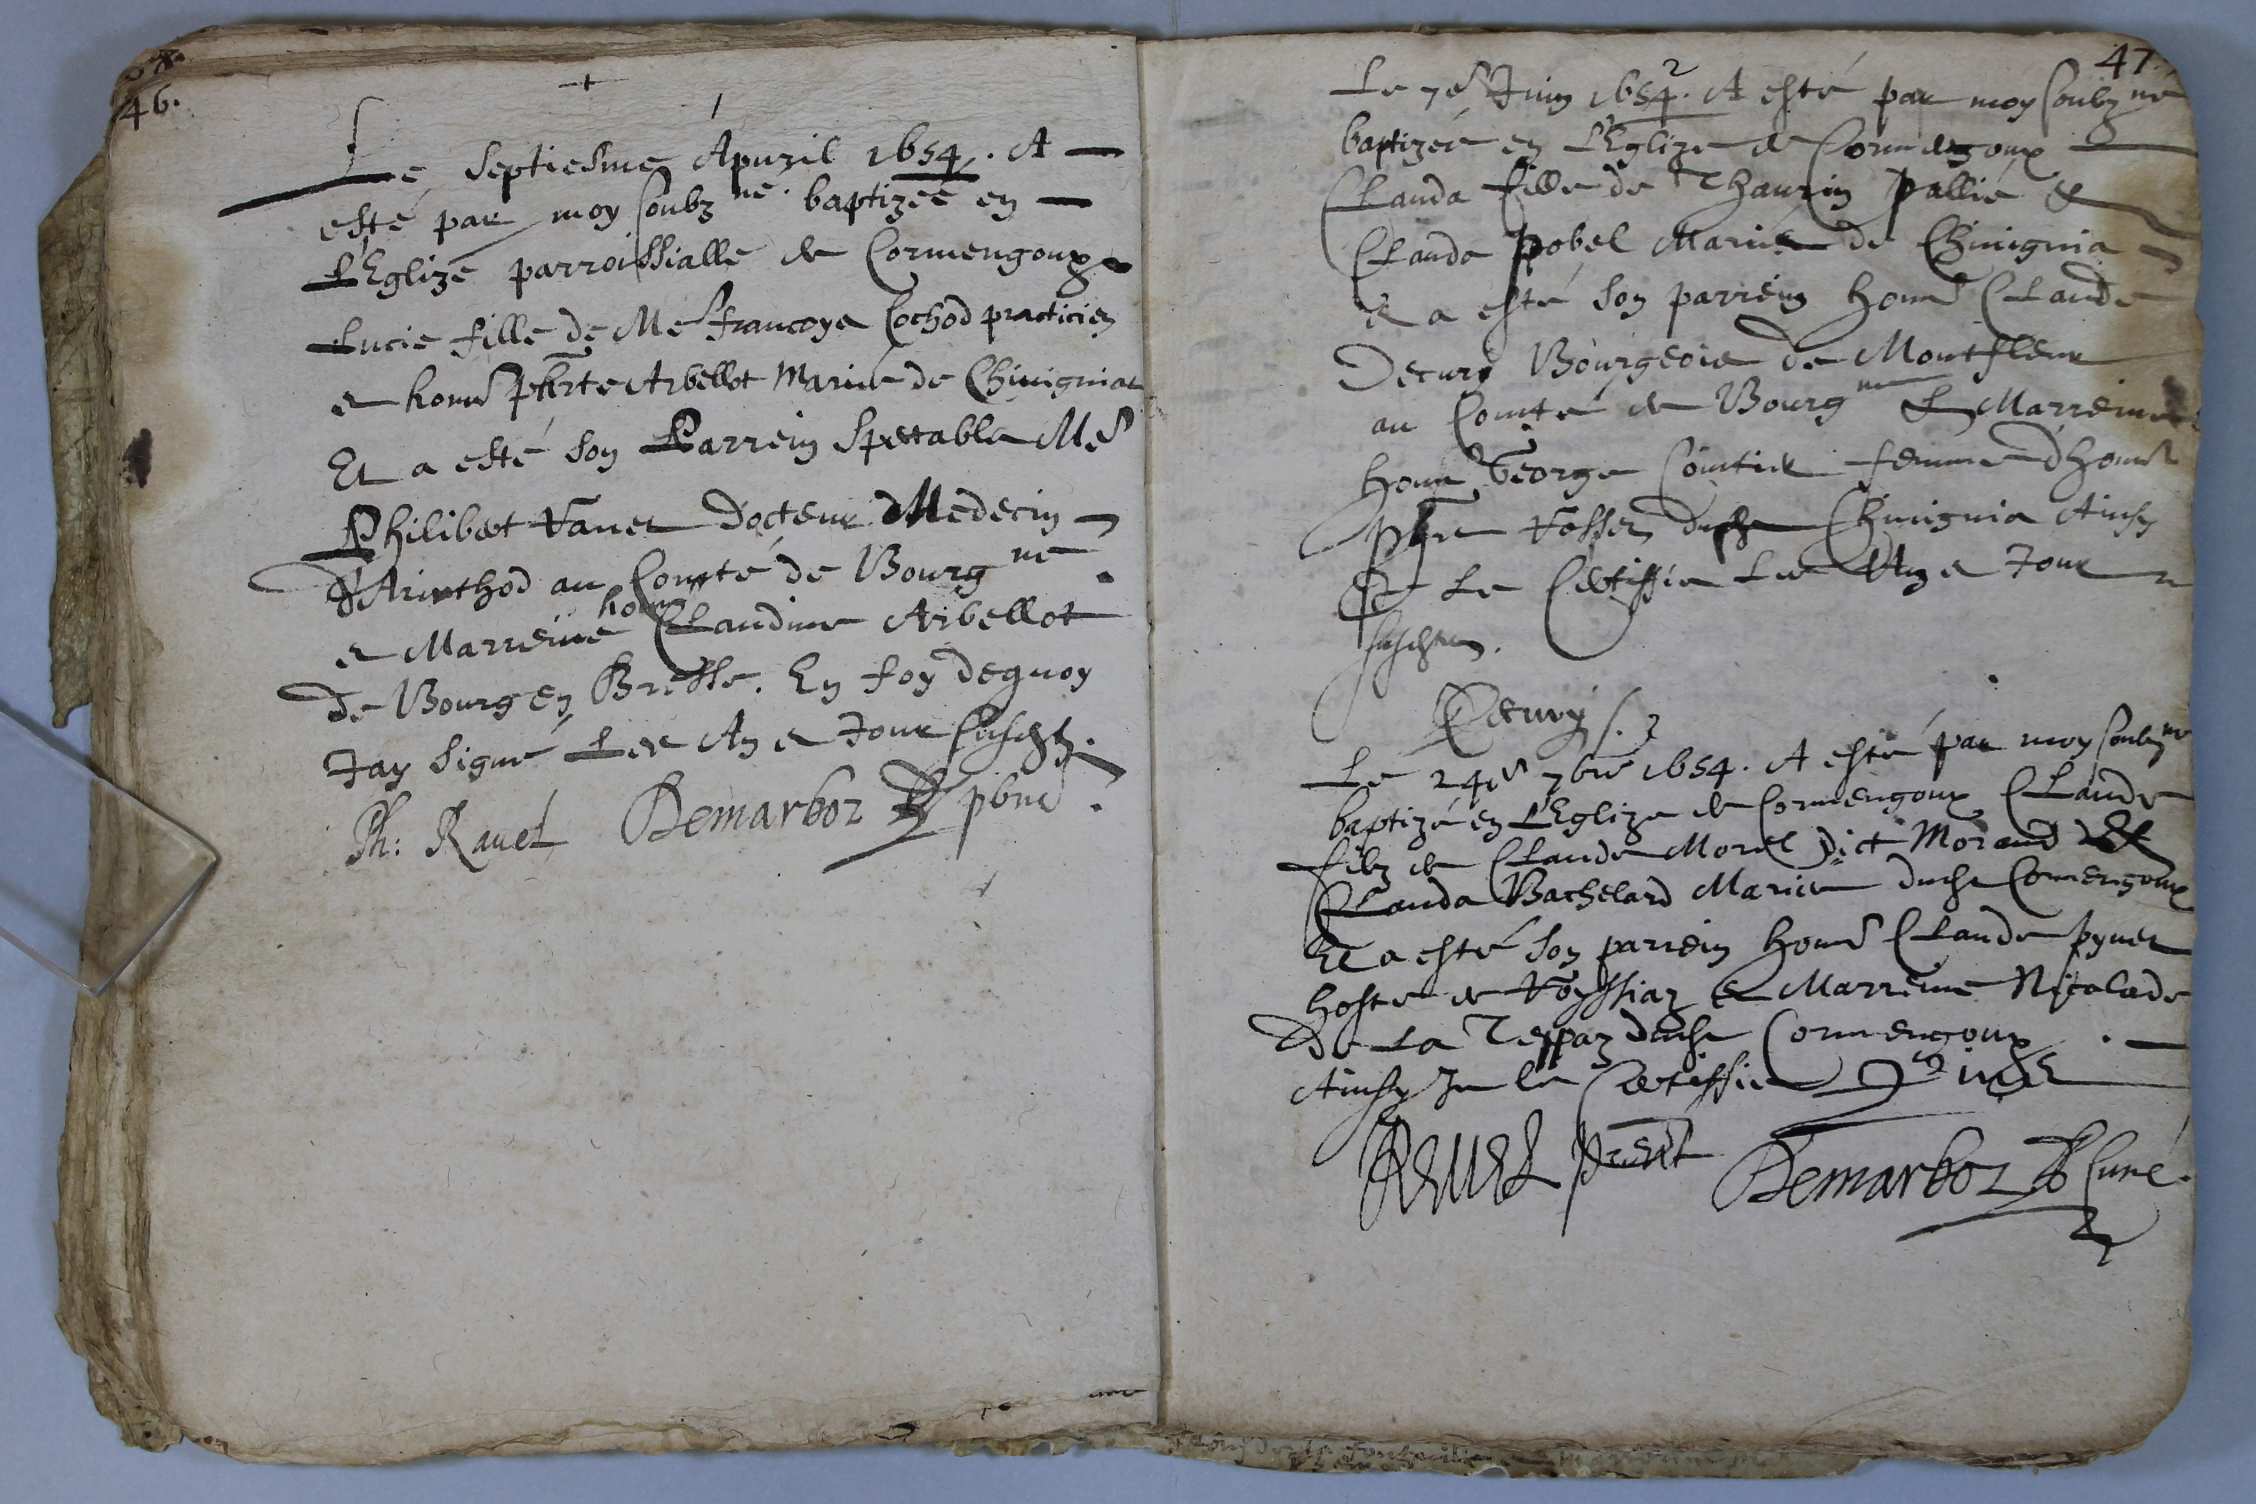 46.
Le septiesme Apuril 1654. A
esté par moy soubz né. baptizée en
L'Eglize parroissialle de Cormengoux
Lucie fille de Mes francoys Cochod practicien
et hone Phrte Arbellot Mariés de Chiuigniat
Et a esté son Parrein Spectable Me
Philibert Vanet Docteur Medecin
D'Arinthod au Comté de Bourg ne.
et Marreine hone Claudine Arbellot
de Bourg en Bresse. En foy dequoy
Jay signé Les An et Jour susdts.
Ph: Ravet Demarboz pbre.
47.
2
Le 7e Juin 1654. A esté par moy soubz né
baptizée en L'Eglize de Cormengoux
Clauda fille de Thaurin Pallié &
Clauda Pobel Mariés de Chiuignia
et a esté son parrein hone Claude
Decury Bourgeois de Montfleur
au Comté de Bourg ne Et Marreine
hone George femme d'hone
dudt Chiuignia Ainsy
Je Le Certiffie Les An et Jour
susdts.
Decury
Le 24e 7bre 1654. A esté par moy soubz né
baptizé en L'Eglize de Cormengoux Claude
filz de Claude Morel Dict Morand &
Clauda Bachelard Mariés dudt Cormengoux
Et a esté son parrein hone Claude Pynet
hoste de Voyssiaz Et Marreine Nicolade
De La Teppaz dudt Cormengoux.
Ainsy Je le Certiffie
Demarboz Curé.